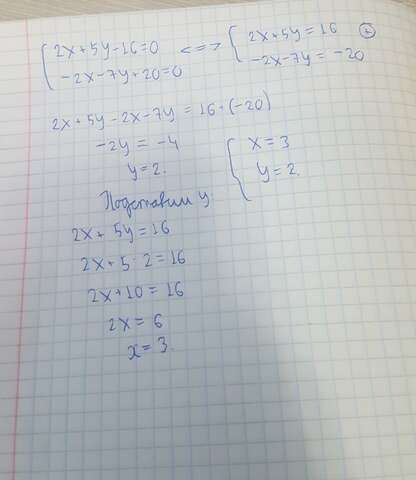 2x+5y-16=0 <=> 2x+5y=16 (+)
-2x-7y+20=0 -2x-7y=-20
2x+5y-2x-7y=16+(-20)
-2y=-4 x=3
y=2. y=2.
Подставим y
2x+5y=16
2x+5·2=16
2x+10=16
2x=6
x=3.